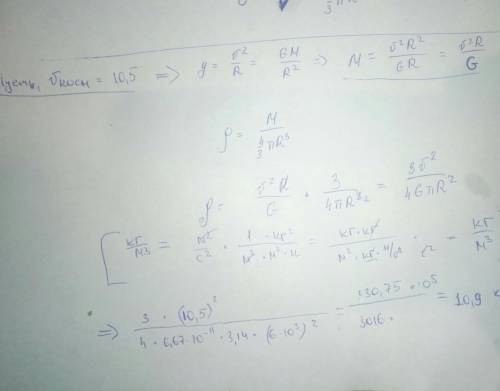 υкосм = 10,5 => g = υ²/R = GM/R² => M = υ²R²/GR = υ²R/G
ρ = M/(4/3 πR³)
ρ = υ²R/G · 3/4πR³ = 3υ²/4GπR²
кг/м³ = м²/с² · 1·кг²/м²·м²·н = кг·кг/м²·кг·м/с² · с² = кг/м³
=> 3·(10,5)²/4·6,67·10⁻¹¹·3,14·(6·10³)² = 330,75·10⁵/3016· = 10,9